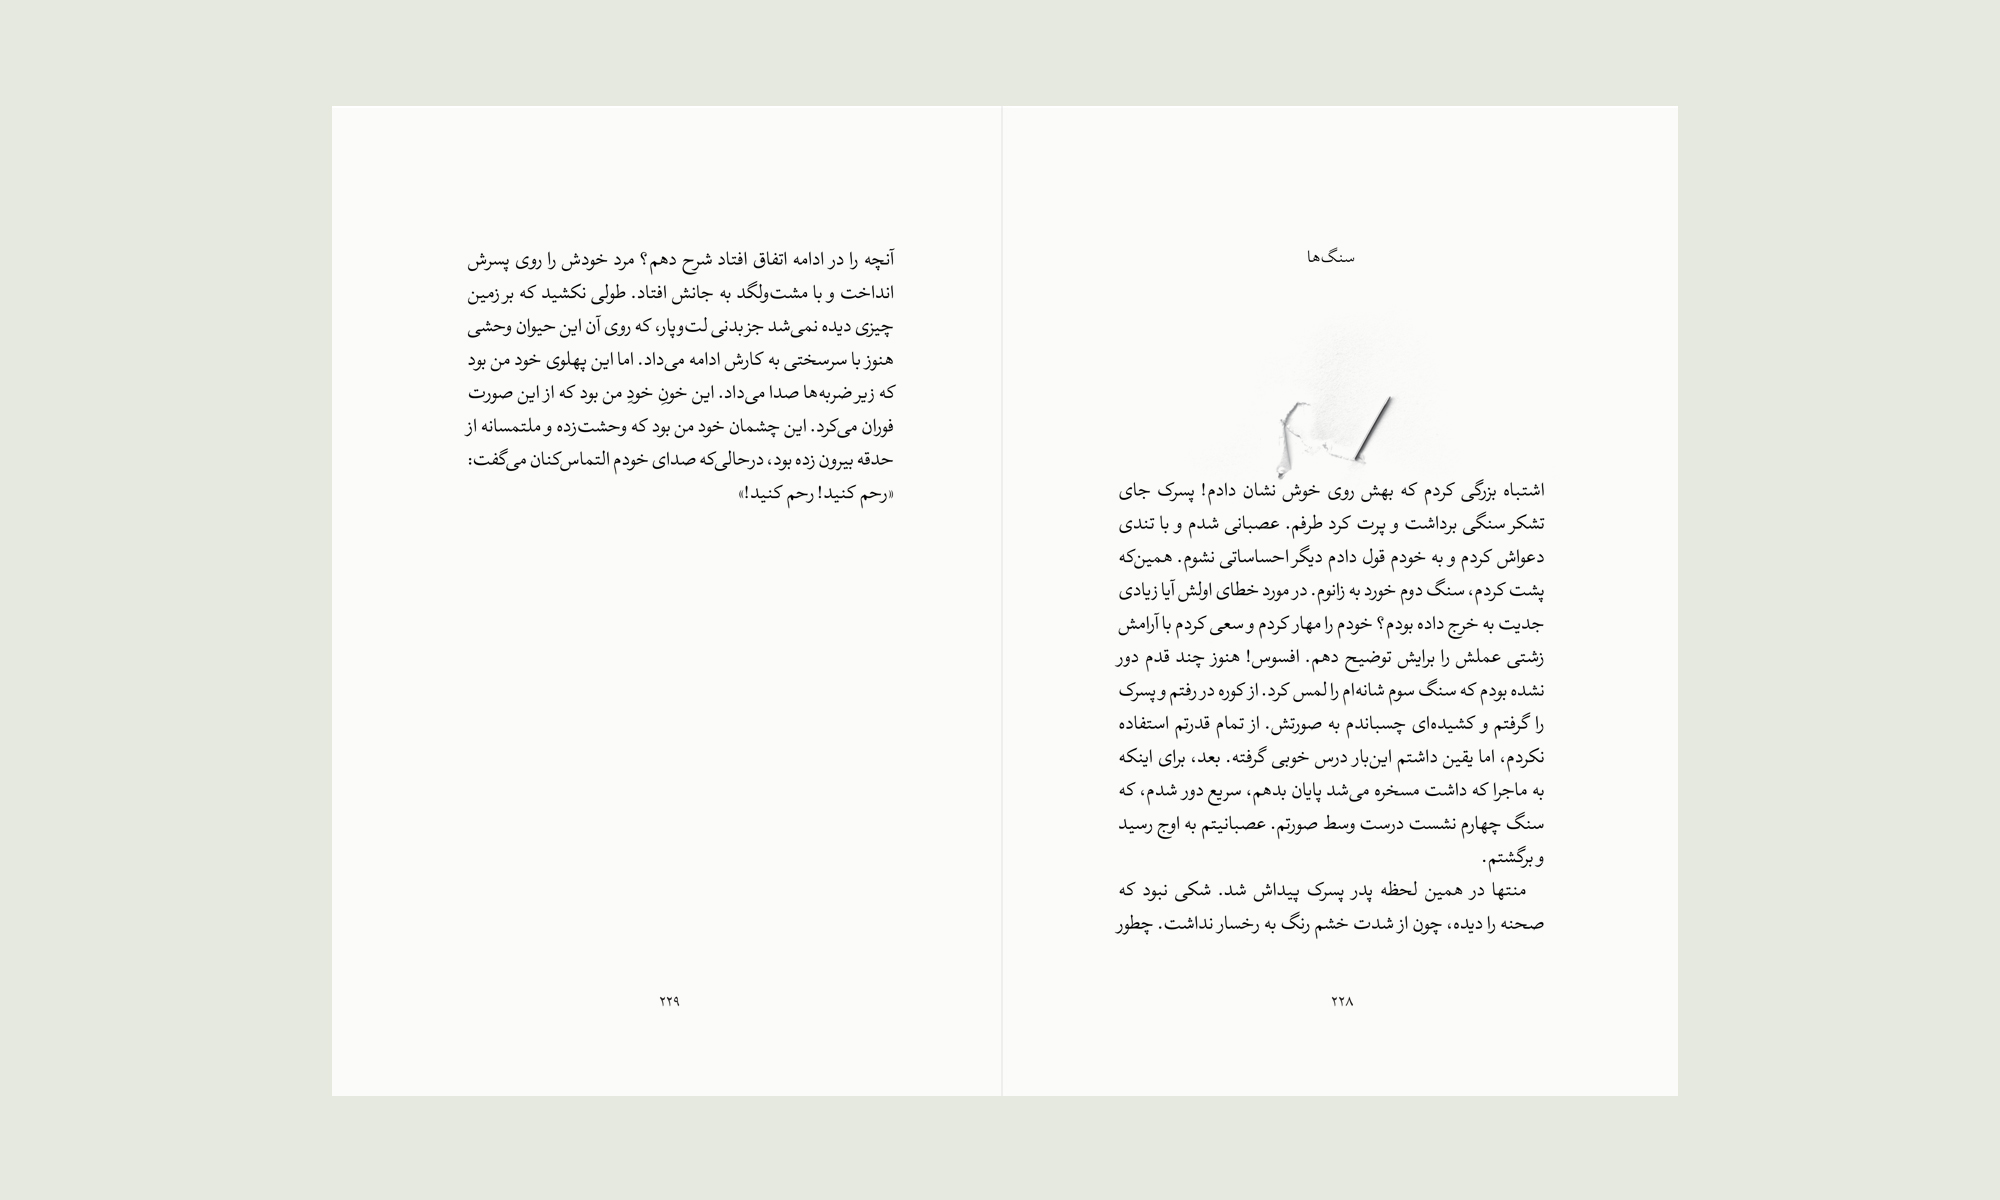 سنگ‌ها
اشتباه بزرگی کردم که بهش روی خوش نشان دادم! پسرک جای
تشکر سنگی برداشت و پرت کرد طرفم. عصبانی شدم و با تندی
دعواش کردم و به خودم قول دادم دیگر احساساتی نشوم. همین‌که
پشت کردم، سنگ دوم خورد به زانوم. در مورد خطای اولش آیا زیادی
جدیت به خرج داده بودم؟ خودم را مهار کردم و سعی کردم با آرامش
زشتی عملش را برایش توضیح دهم. افسوس! هنوز چند قدم دور
نشده بودم که سنگ سوم شانه‌ام را لمس کرد. از کوره در رفتم و پسرک
را گرفتم و کشیده‌ای چسباندم به صورتش. از تمام قدرتم استفاده
نکردم، اما یقین داشتم این‌بار درس خوبی گرفته. بعد، برای اینکه
به ماجرا که داشت مسخره می‌شد پایان بدهم، سریع دور شدم، که
سنگ چهارم نشست درست وسط صورتم. عصبانیتم به اوج رسید
و برگشتم.
منتها در همین لحظه پدر پسرک پیداش شد. شکی نبود که
صحنه را دیده، چون از شدت خشم رنگ به رخسار نداشت. چطور
۲۲۸
آنچه را در ادامه اتفاق افتاد شرح دهم؟ مرد خودش را روی پسرش
انداخت و با مشت‌ولگد به جانش افتاد. طولی نکشید که بر زمین
چیزی دیده نمی‌شد جز بدنی لت‌وپار، که روی آن این حیوان وحشی
هنوز با سرسختی به کارش ادامه می‌داد. اما این پهلوی خود من بود
که زیر ضربه‌ها صدا می‌داد. این خونِ خودِ من بود که از این صورت
فوران می‌کرد. این چشمان خود من بود که وحشت‌زده و ملتمسانه از
حدقه بیرون زده بود، درحالی‌که صدای خودم التماس‌کنان می‌گفت:
«رحم کنید! رحم کنید!»
۲۲۹